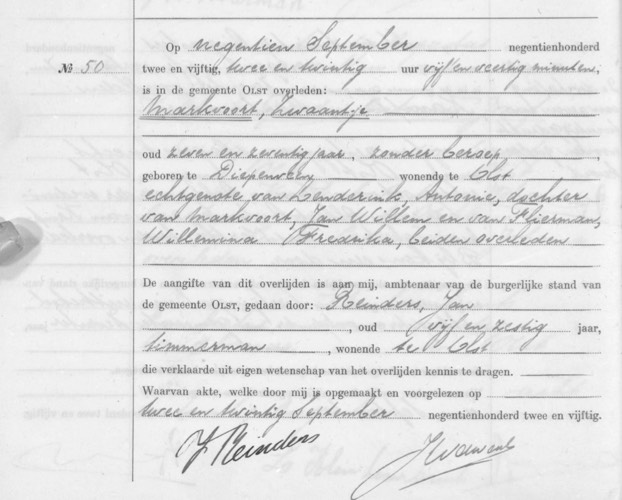 Op negentien September negentienhonderd
№ 50 twee en vijftig, twee en twintig uur vijf en veertig minuten,
is in de gemeente OLST overleden:
Markvoort, Zwaantje
oud zeven en zeventig jaar, zonder beroep,
geboren te Diepenveen wonende te Olst
echtgenote van Lenderink, Antonie, dochter
van Markvoort, Jan Willem en van Flierman,
Willemina Fredrika, beiden overleden
De aangifte van dit overlijden is aan mij, ambtenaar van de burgerlijke stand van
de gemeente OLST, gedaan door: Reinders, Jan
, oud vijf en zestig jaar,
timmerman, wonende te Olst
die verklaarde uit eigen wetenschap van het overlijden kennis te dragen.
Waarvan akte, welke door mij is opgemaakt en voorgelezen op
twee en twintig September negentienhonderd twee en vijftig.
J Reinders